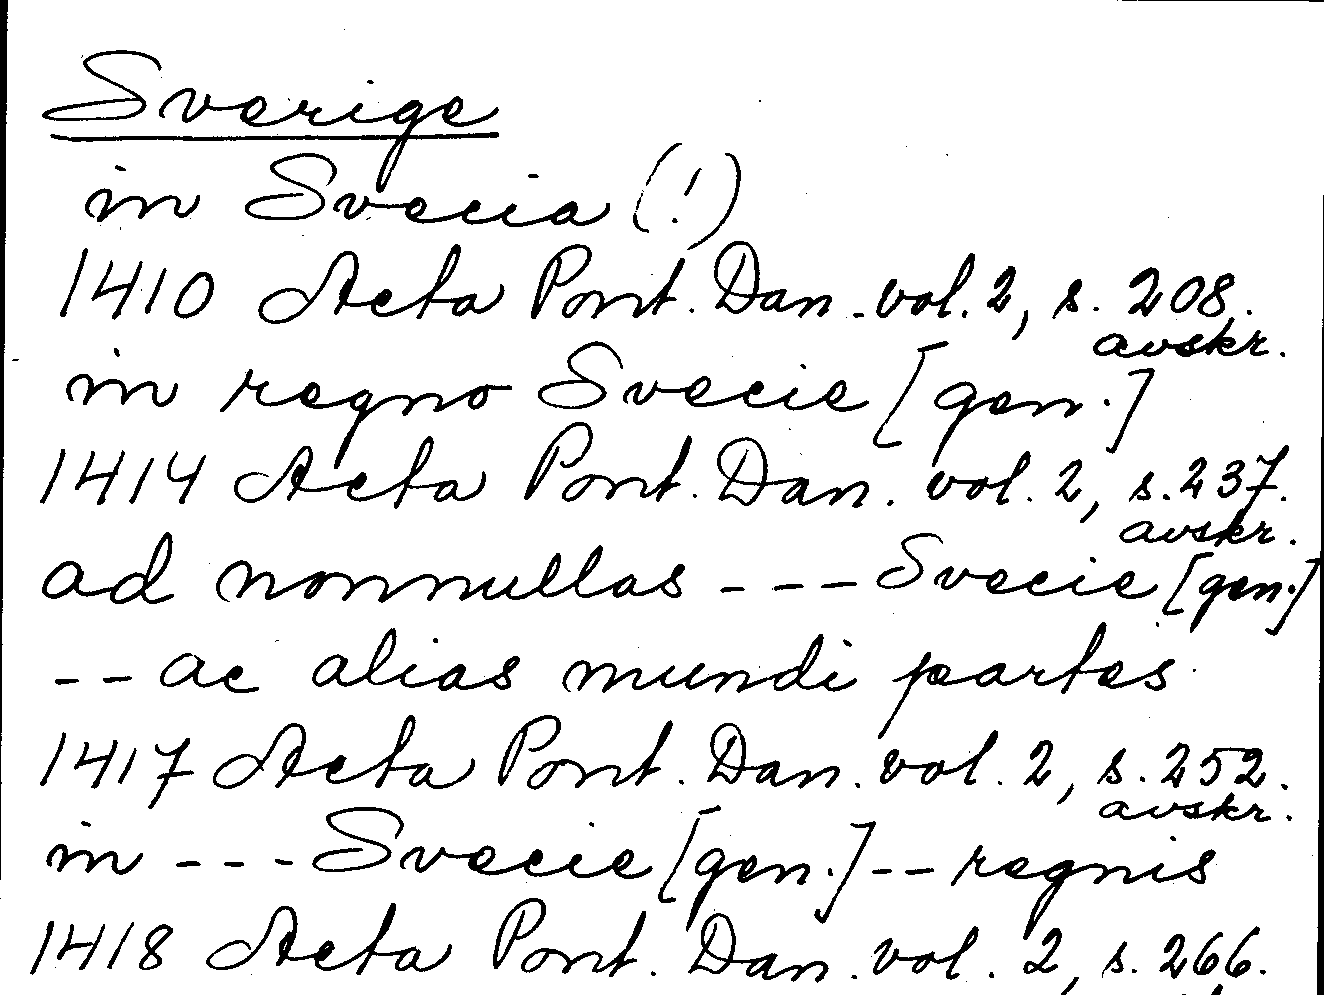 Sverige
in Svecia (!)
1410 Acta Pont. Dan. vol. 2, s. 208.
avskr.
in regno Svecie [gen.]
1414 Acta Pont. Dan. vol. 2, s. 237.
avskr.
ad nonnullas --- Svecie [gen.]
-- ac alias mundi partes
1417 Acta Pont. Dan. vol. 2, s. 252.
avskr.
in --- Svecie [gen.] -- regnis
1418 Acta Pont. Dan. vol. 2, s. 266.